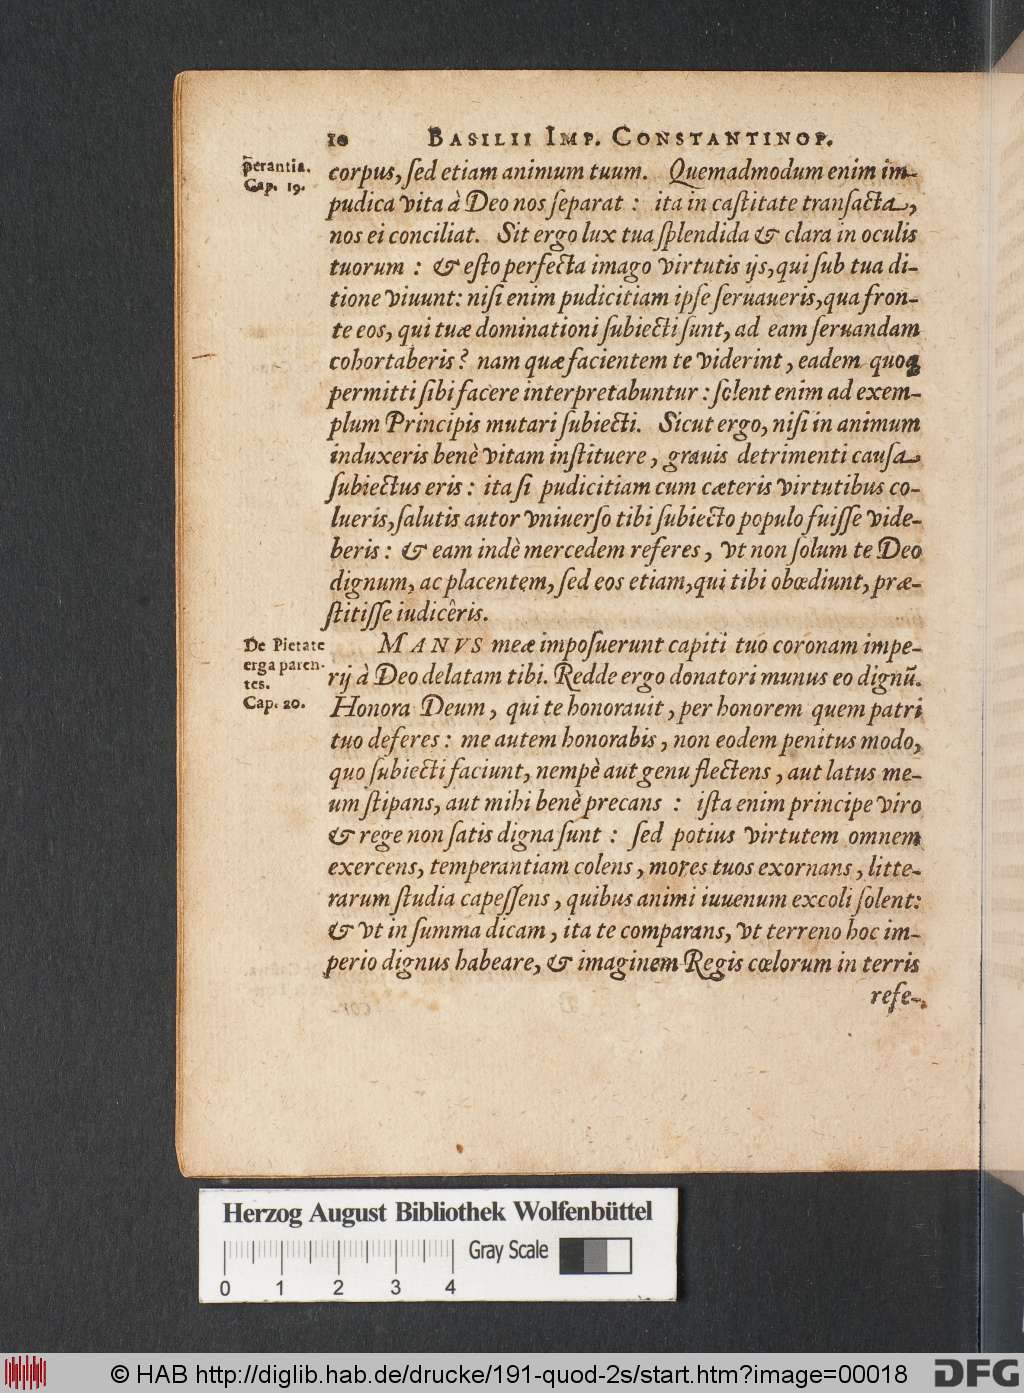 10 BASILII IMP. CONSTANTINOP.
p̃erantia.
Cap. 19.
corpus, ſed etiam animum tuum. Quemadmodum enim im-
pudica vita à Deo nos ſeparat : ita in caſtitate tranſacta,
nos ei conciliat. Sit ergo lux tua ſplendida & clara in oculis
tuorum : & eſto perfecta imago virtutis ijs, qui ſub tua di-
tione viuunt: niſi enim pudicitiam ipſe ſeruaueris, qua fron-
te eos, qui tuæ dominationi ſubiecti ſunt, ad eam ſeruandam
cohortaberis? nam quæ facientem te viderint, eadem quoq;
permitti ſibi facere interpretabuntur : ſolent enim ad exem-
plum Principis mutari ſubiecti. Sicut ergo, niſi in animum
induxeris benè vitam inſtituere, grauis detrimenti cauſa
ſubiectus eris : ita ſi pudicitiam cum cæteris virtutibus co-
lueris, ſalutis autor vniuerſo tibi ſubiecto populo fuiſſe vide-
beris : & eam indè mercedem referes, vt non ſolum te Deo
dignum, ac placentem, ſed eos etiam, qui tibi obœdiunt, præ-
ſtitiſſe iudicêris.
De Pietate
erga paren-
tes.
Cap. 20.
MANVS meæ impoſuerunt capiti tuo coronam impe-
rij à Deo delatam tibi. Redde ergo donatori munus eo dignũ.
Honora Deum, qui te honorauit, per honorem quem patri
tuo deferes : me autem honorabis, non eodem penitus modo,
quo ſubiecti faciunt, nempè aut genu flectens, aut latus me-
um ſtipans, aut mihi benè precans : iſta enim principe viro
& rege non ſatis digna ſunt : ſed potius virtutem omnem
exercens, temperantiam colens, mores tuos exornans, litte-
rarum ſtudia capeſſens, quibus animi iuuenum excoli ſolent:
& vt in ſumma dicam, ita te comparans, vt terreno hoc im-
perio dignus habeare, & imaginem Regis cœlorum in terris
refe-
Herzog August Bibliothek Wolfenbüttel
Gray Scale
0 1 2 3 4
© HAB http://diglib.hab.de/drucke/191-quod-2s/start.htm?image=00018
DFG